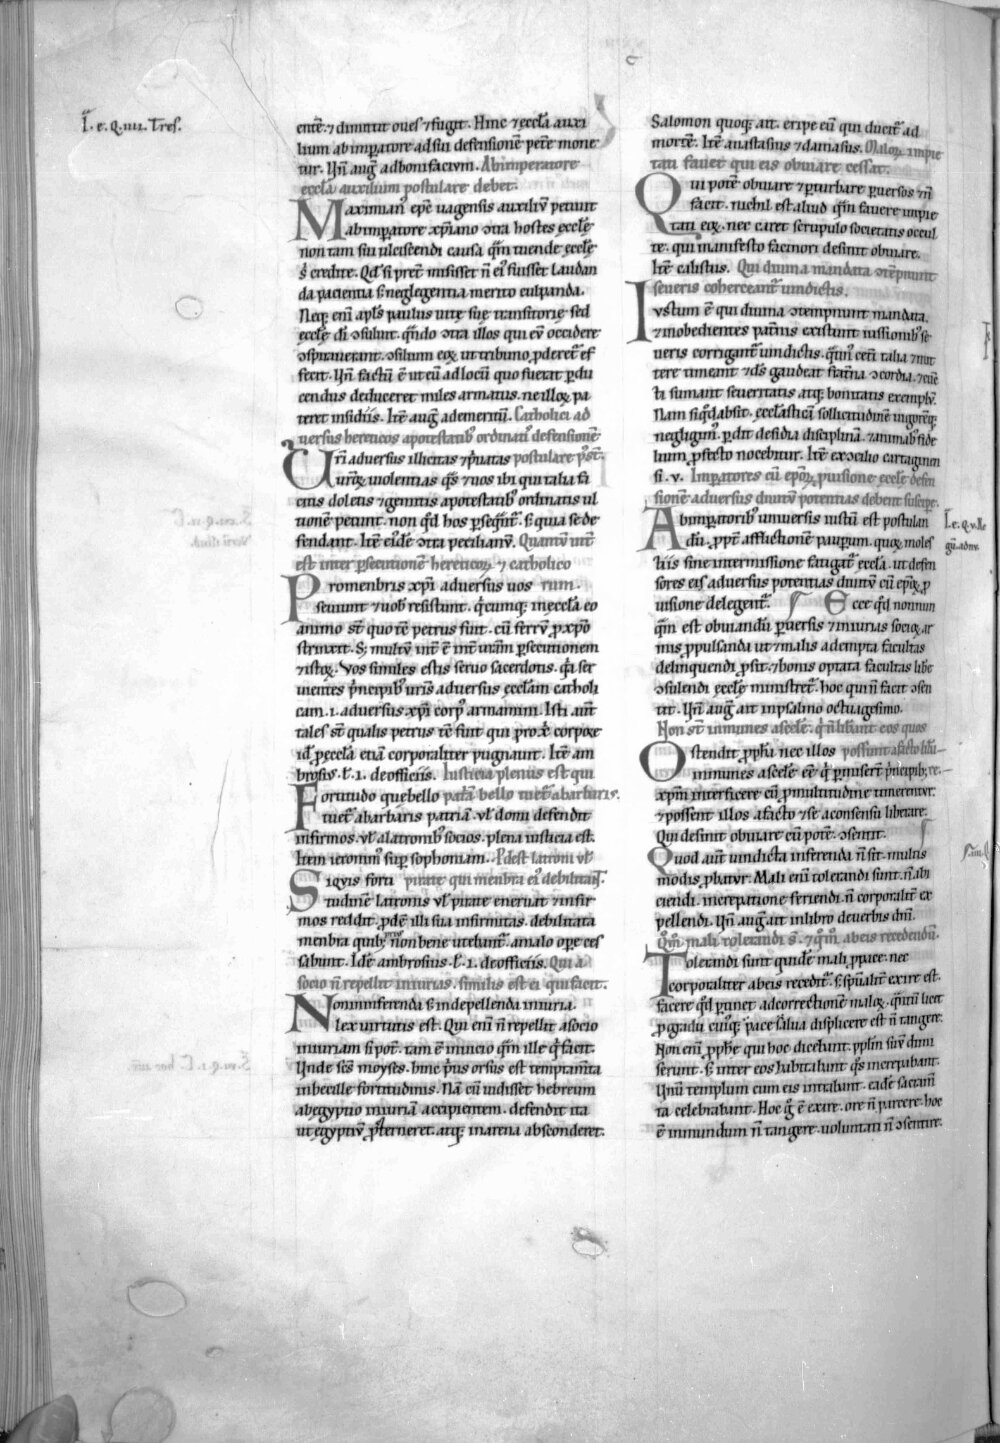 I. e. Q. iiii. Tres.
ente. ⁊ dimittit oues ⁊ fugit. Hinc ⁊ eccl̄a auxi
lium ab imꝑatore ad sui defensionē petere mone
tur. Vñ aug̃ ad bonifacium. Ab imperatore
eccl̄a auxilium postulare debet.
Maximian᷒ epc̄ uagensis auxiliū petiuit
ab imꝑatore xp̄iano ↄtra hostes eccl̄ę
non tam sui ulciscendi causa q̄m tuendę eccl̄ę
s̕ creditę. Qd̄ si pret᷒misisset n̄ ei᷒ fuisset laudan
da pacientia s; neglegentia merito culpanda.
Neq; enī apl̄s paulus uitę suę transitorię sed
eccl̄ę dī ↄsuluit. q̄ndo ↄtra illos qui eū occidere
ↄspirauerant. ↄsilium eoꝝ ut tribuno ꝓderet᷒ ef
fecit. Vñ factū ē ut eū ad locū quo fuerat ꝑdu
cendus deduceret miles armatus. ne illoꝝ pa
teret᷒ insidiis. Itē aug̃ ad emeritū. Catholici ad
uersus hereticos a potestatib᷒ ordinatis defensionē
Vr̄i aduersus illicitas ⁊ p̕uatas postulare p̄st̄.
ur̄oꝝ uiolentias q̄s ⁊ uos ibi qui talia fa
ciūs doletis ⁊ gemitis a potestatib᷒ ordinatis ul
tionē petunt. non q̄d hos ꝑseq̄nt᷒. s; quia se de
fendant. Itē eid̄e ↄtra petilianū. Quantū int̄
est inter ꝑsecutionē hereticoꝝ ⁊ catholico
Pro menbris xp̄i aduersus uos rum.
seuiunt ⁊ uob̄ resistunt. q̕cumq; in eccl̄a eo
animo st̄ quo tē petrus fuit. cū ferrū ꝓ xp̄o
strinxit. S; multū int̄ ē int̄ ur̄am ꝑsecutionem
⁊ istoꝝ. Vos similes estis seruo sacerdotis. q̕a ser
uientes p̕ncipib᷒ ur̄is aduersus eccl̄am catholi
cam. i. aduersus xp̄i corp᷒ armamini. Isti aūt
tales st̄ qualis petrus tē fuit qui pro xp̄i corpore
id̄ ꝑ eccl̄a etiā corporaliter pugnauit. Itē am
brosius. l̄. i. de officiis. Iusticia plenus est qui
Fortitudo que bello patā bello tuet᷒ a barbaris.
tuet᷒ a barbaris patriā. ul̄ domi defendit
infirmos. ul̄ a latronib᷒ socios. plena iusticia est.
Item ieronim᷒ suꝑ sophoniam. P̄dest latroni ul̄
Siquis forti piratę qui menbra ei᷒ debilitat.
tudinē latronis ul̄ piratę eneruat ⁊ infir
mos reddit. ꝓdē illi sua infirmitas. debilitata
menbra quib; prius non bene utebant᷒. a malo oꝑe ces
sabunt. Idē ambrosius. l̄. i. de officiis. Qui a
socio n̄ repellit iniurias. similis est ei qui facit.
Non inferenda s; in depellenda iniuria
lex uirtutis est. Qui enī n̄ repellit a socio
iniuriam si pot̄. tam ē in uicio q̄m ille q̕ facit.
Vnde sc̄s moyses. hinc p̕us orsus est temptamta
inbecille fortitudinis. Nā cū uidisset hebreum
ab egyptio iniuriā accipientem. defendit ita
ut egyptiū ꝓsterneret. atq; in arena absconderet.
Salomon quoq; ait. eripe eū qui ducit᷒ ad
mortē. Itē anastasius ⁊ damasus. Maloꝝ impie
tati fauet qui eis obuiare cessat.
Qui potē obuiare ⁊ ꝑturbare ꝑuersos ⁊ n̄
facit. nichil est aliud q̄m fauere impie
tati eoꝝ. nec caret scrupulo societatis occul
tę. qui manifesto facinori desinit obuiare.
Itē calistus. Qui diuina mandata ↄtēpnunt
seueris coherceant᷒ uindictis.
Iustum ē qui diuina ↄtempnunt mandata.
⁊ inobedientes patrūs existunt iussionib᷒ se
ueris corrigant᷒ uindictis. q̄tin᷒ ceti talia ⁊mit
tere timeant ⁊ ōs gaudeat fr̄atna ↄcordia. ⁊ cūc
ti sumant seueritatis atq; bonitatis exemplū.
Nam si q̄d absit. eccl̄asticā sollicitudinē iugorēq;
negligim᷒. ꝑdit desidia disciplinā. ⁊ animab᷒ fide
lium ꝓfecto nocebitur. Itē ex ↄcilio cartaginen
si. v. Imꝑatores cū epoꝝ puisione eccl̄ę defen
sionē aduersus diuitū potentias debent suscipe.
Ab imꝑatorib᷒ uniuersis iustū est postulan
dū. ꝓpt̄ afflictionē pauꝑum. quoꝝ moles
tiis sine intermissione fatigat᷒ eccl̄a. ut defen
sores eis aduersus potentias diuitū cū epoꝝ ꝓ
uisione delegent᷒. Ecce q̄d nonnun
q̄m est obuiandū ꝑuersis ⁊ iniurias socioꝝ ar
mis ꝓpulsanda ut ⁊ malis adempta facultas
delinquendi ꝓsit. ⁊ bonis optata facultas libe
ↄsulendi eccl̄ę ministret᷒. hoc qui n̄ facit ↄsen
tit. Vñ aug̃ ait in psalmo octuagesimo.
Non st̄ inmunes a scelere. q̕ n̄ libant eos quos
Ostendit ꝓph̄a nec illos possunt a facto libi
inmunes a scelere eē q̕ ꝑmisert̄ p̕ncipib; re.
xp̄m interficere cū ꝓ multitudine timerentur.
⁊ possent illos a facto ⁊ se a consensu liberare.
Qui desinit obuiare cū potē. ↄsentit.
Quod aūt uindicta inferenda n̄ sit. multis
modis ꝓbatur. Mali enī tolerandi sunt. n̄ abi
ciendi. increpatione feriendi. n̄ corporalit̄ ex
pellendi. Vñ aug̃ ait in libro de uerbis dn̄i.
Qm̄ mali tolerandi s̄. ⁊ qm̄ ab eis recedendū.
Tolerandi sunt quidē mali ꝓ pace. nec
corporaliter ab eis recedit᷒. s; sp̄ualit̄ exire est.
facere q̄d ꝑtinet ad correctionē maloꝝ. q̄ntū licet
ꝓ gradu cuiq; pace salua displicere est n̄ tangere.
Non enī ꝓph̄e qui hoc dicebant. ppl̄m suū dimi
serunt. s; inter eos habitabant q̕s increpabant.
Vnū templum cum eis intrabant. eadē sacam̄
ta celebrabant. Hoc g̃ ē exire. ore n̄ parcere. hoc
ē inmundum n̄ tangere. uoluntati n̄ ↄsentire.
I. e. Q. v. Re